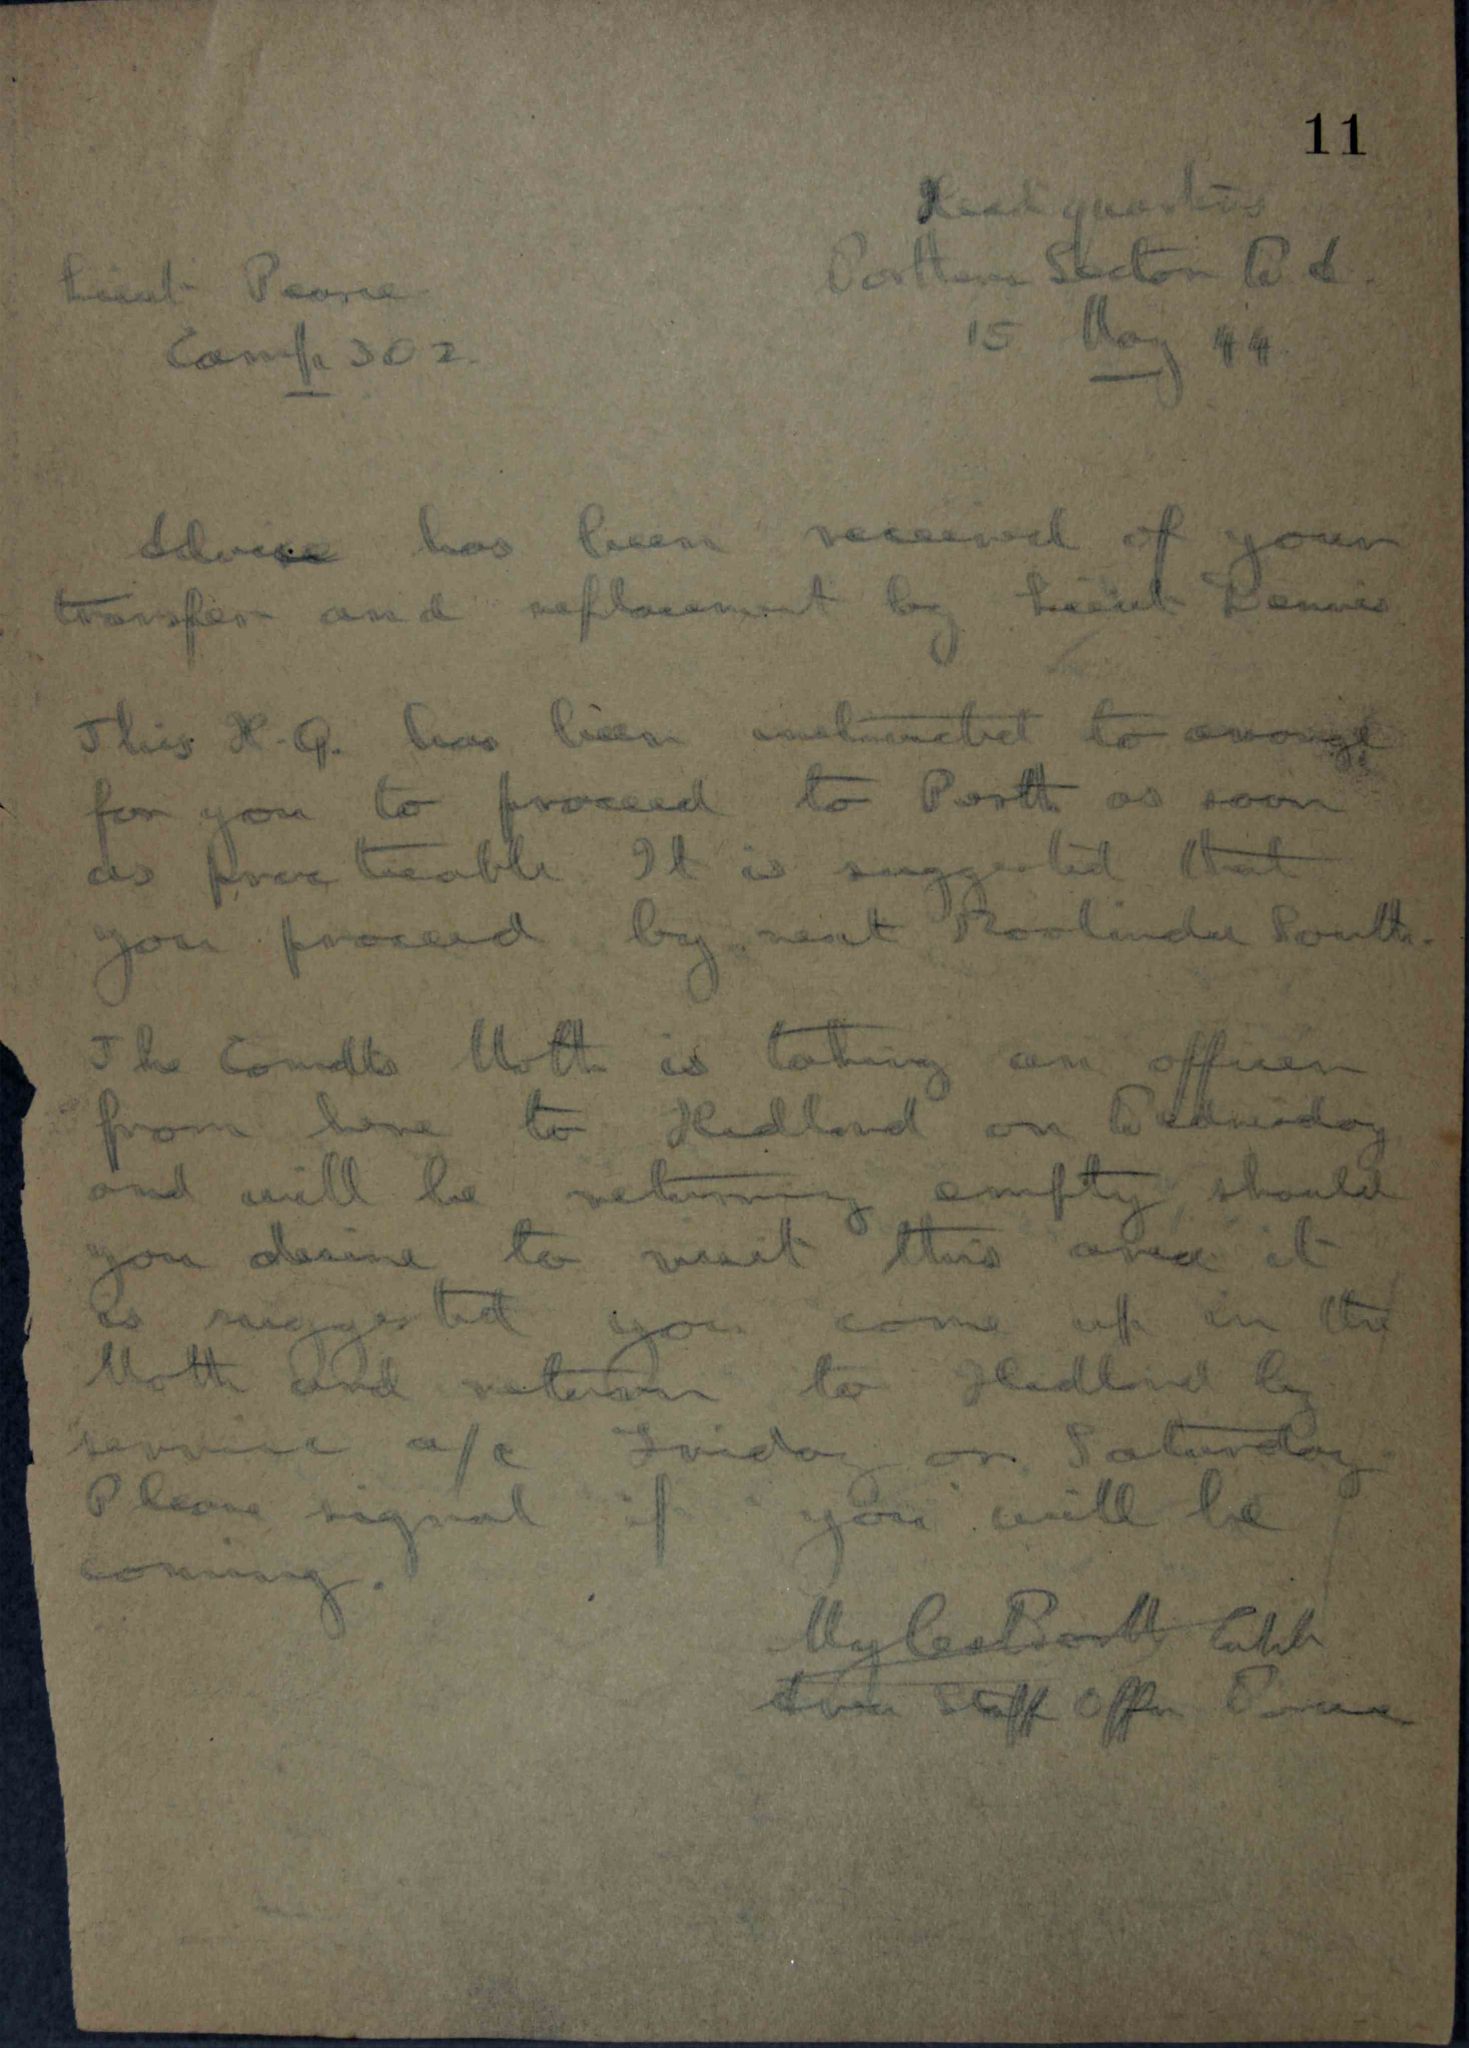 11
Headquarters
Sector
15 May 44
Lieut Pearse
Camp 302.
Advice has been received of your
transfer and replacement by Lieut Dennis
This H.Q. has been instructed to arrange
for you to proceed to Perth as soon
as practicable It is suggested that
you proceed by next Koolinda South.
The Comdts Moth is taking an officer
from here to Hedland on Wednesday
and will be returning empty, should
you desire to visit this area it
is suggested you come up in the
Moth and return to Hedland by
service a/c Friday or Saturday.
Please signal if you will be
coming.
Capt
Area Staff Offr